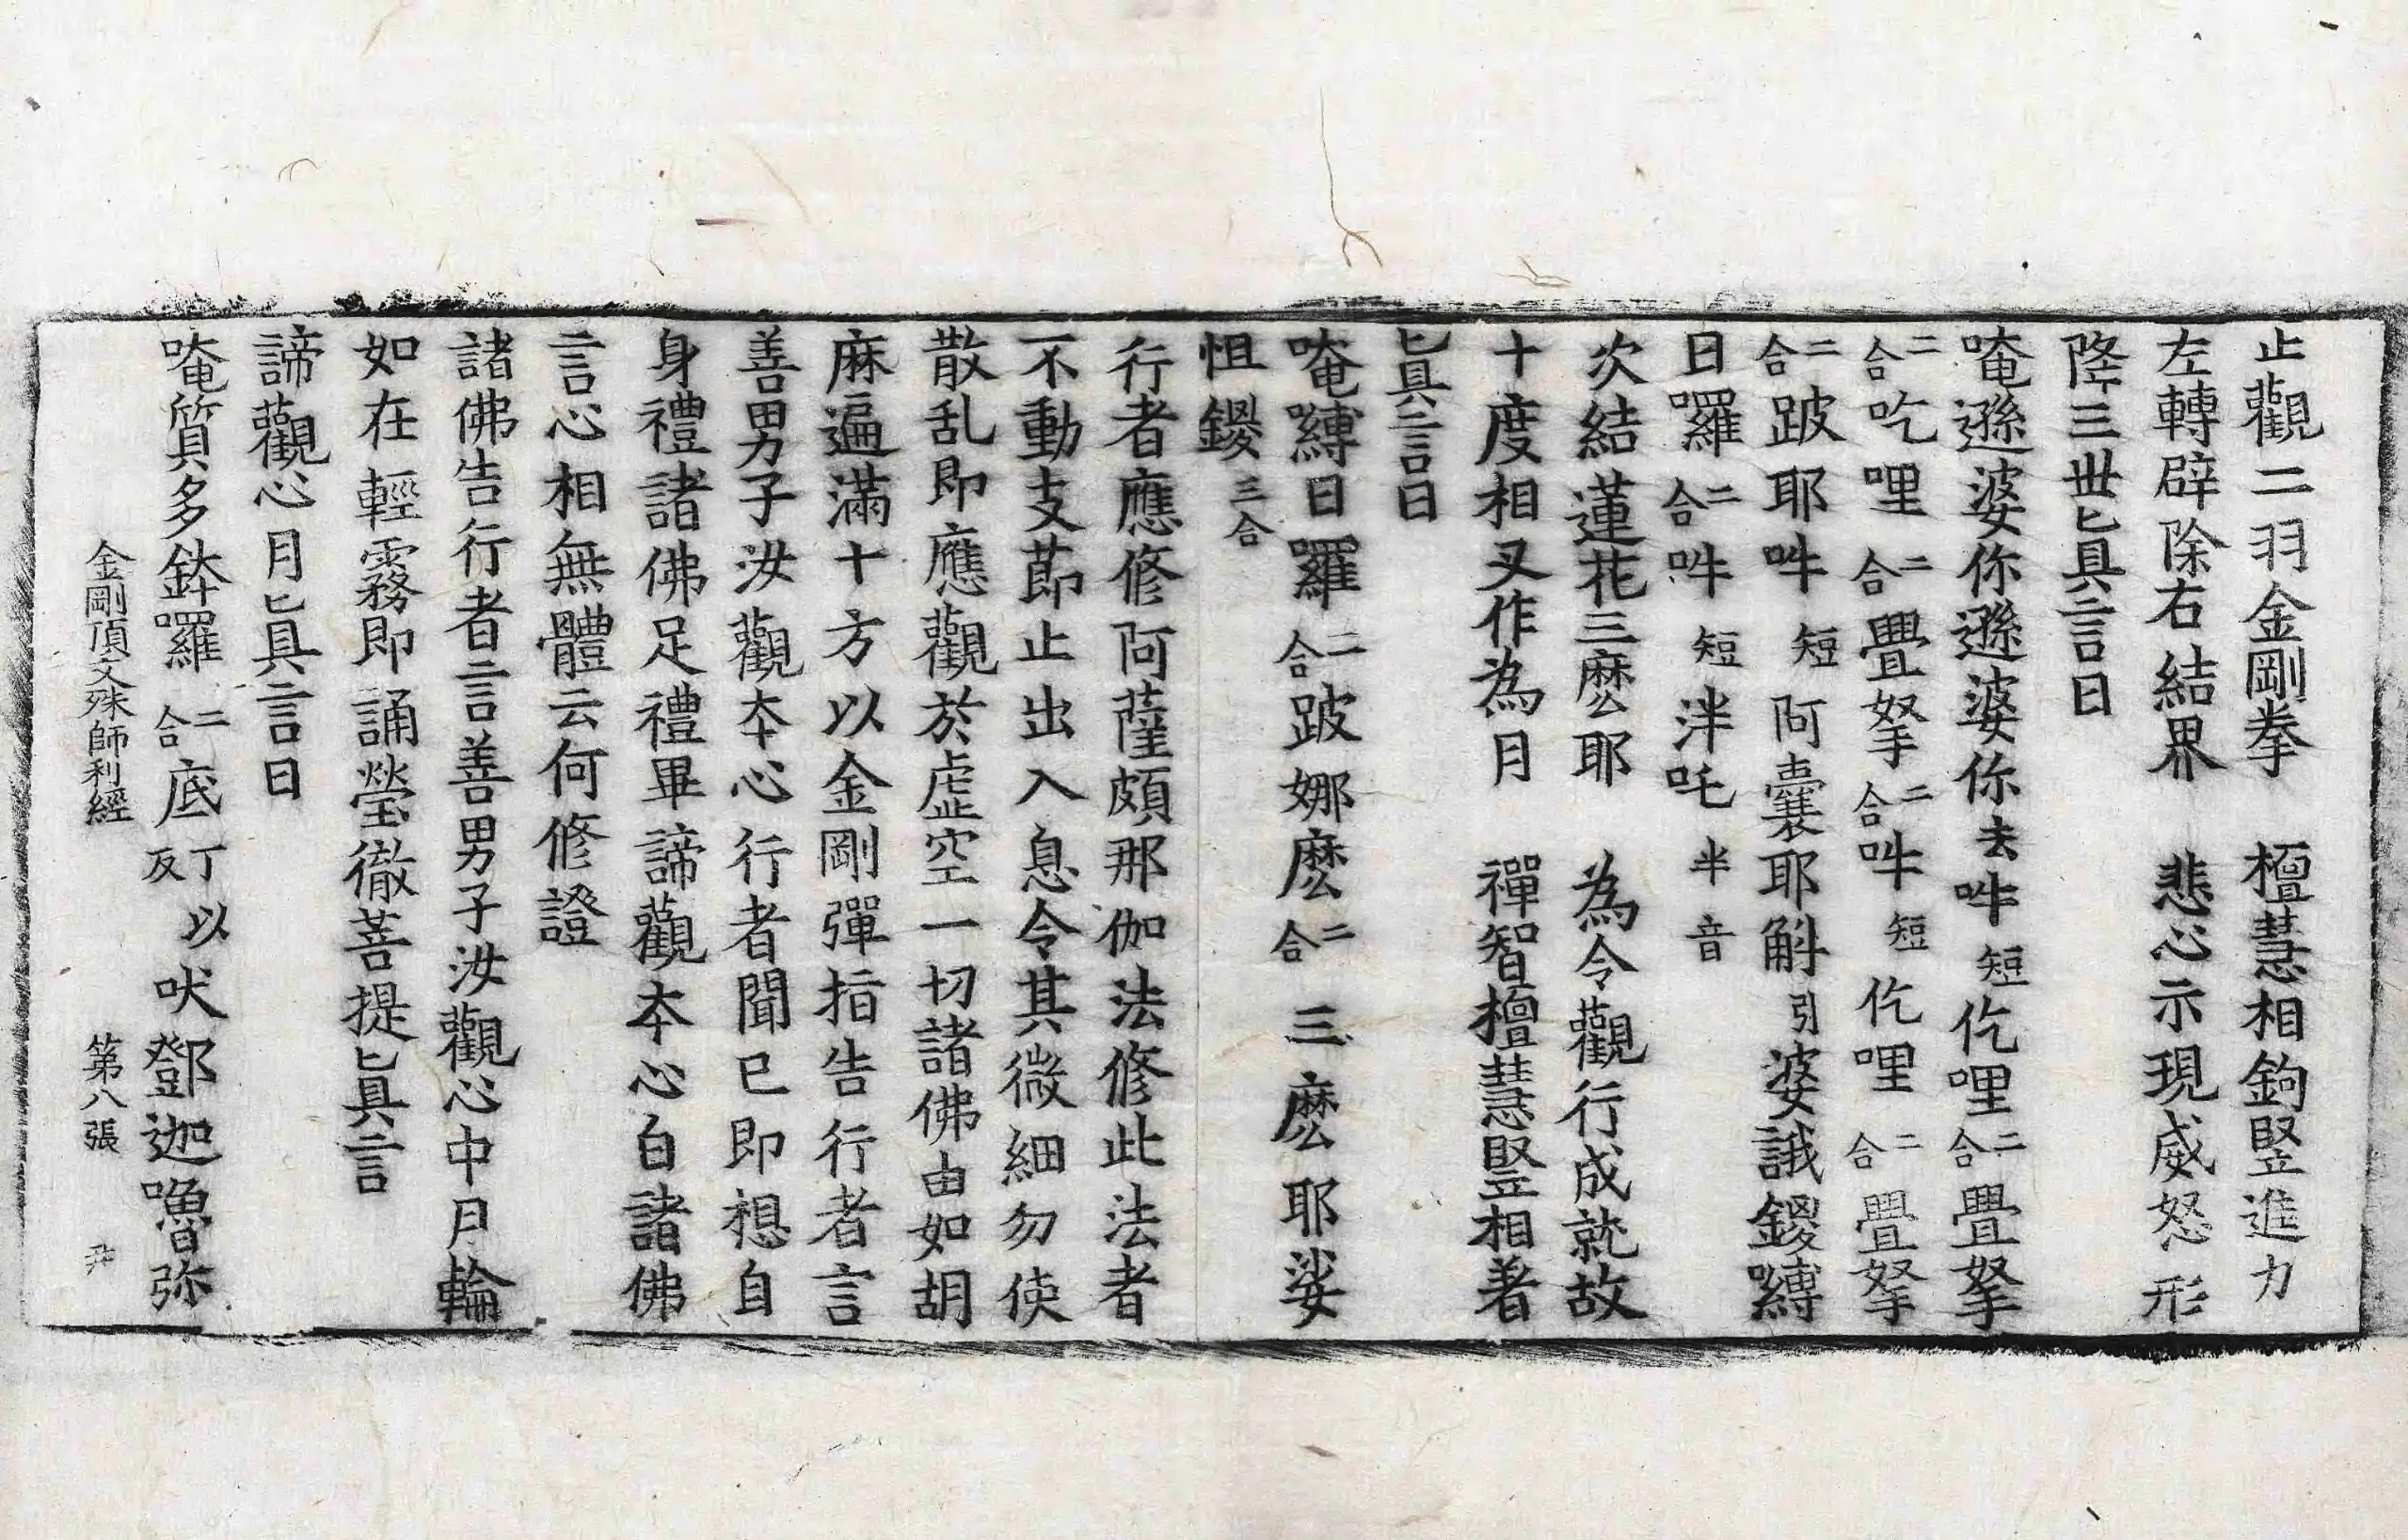 止觀二羽金剛拳　檀慧相鉤豎進力
左轉辟除右結界　悲心示現威怒形
降三世真言曰
唵遜婆你遜婆你去吽短仡哩二合疊拏
二合吃哩二合疊拏二合吽短仡哩二合疊拏
二合跛耶吽短阿囊耶斛引婆誐鑁嚩
日囉二合吽短泮吒半音
次結蓮花三麽耶　為令觀行成就故
十度相叉作為月　禪智檀慧豎相著
真言曰
唵嚩日囉二合跛娜麽二合三麽耶娑
怛鑁三合
行者應修阿薩頗那伽法修此法者
不動支莭止出入息令其微細勿使
散乱即應觀於虛空一切諸佛由如胡
麻遍滿十方以金剛彈指告行者言
善男子汝觀本心行者聞已即想自
身禮諸佛足禮畢諦觀本心白諸佛
言心相無體云何修證
諸佛告行者言善男子汝觀心中月輪
如在輕霧即誦瑩徹菩提真言
諦觀心月真言曰
唵質多鉢囉二合底丁以反吠鄧迦嚕弥
金剛頂文殊師利經　第八張　尹